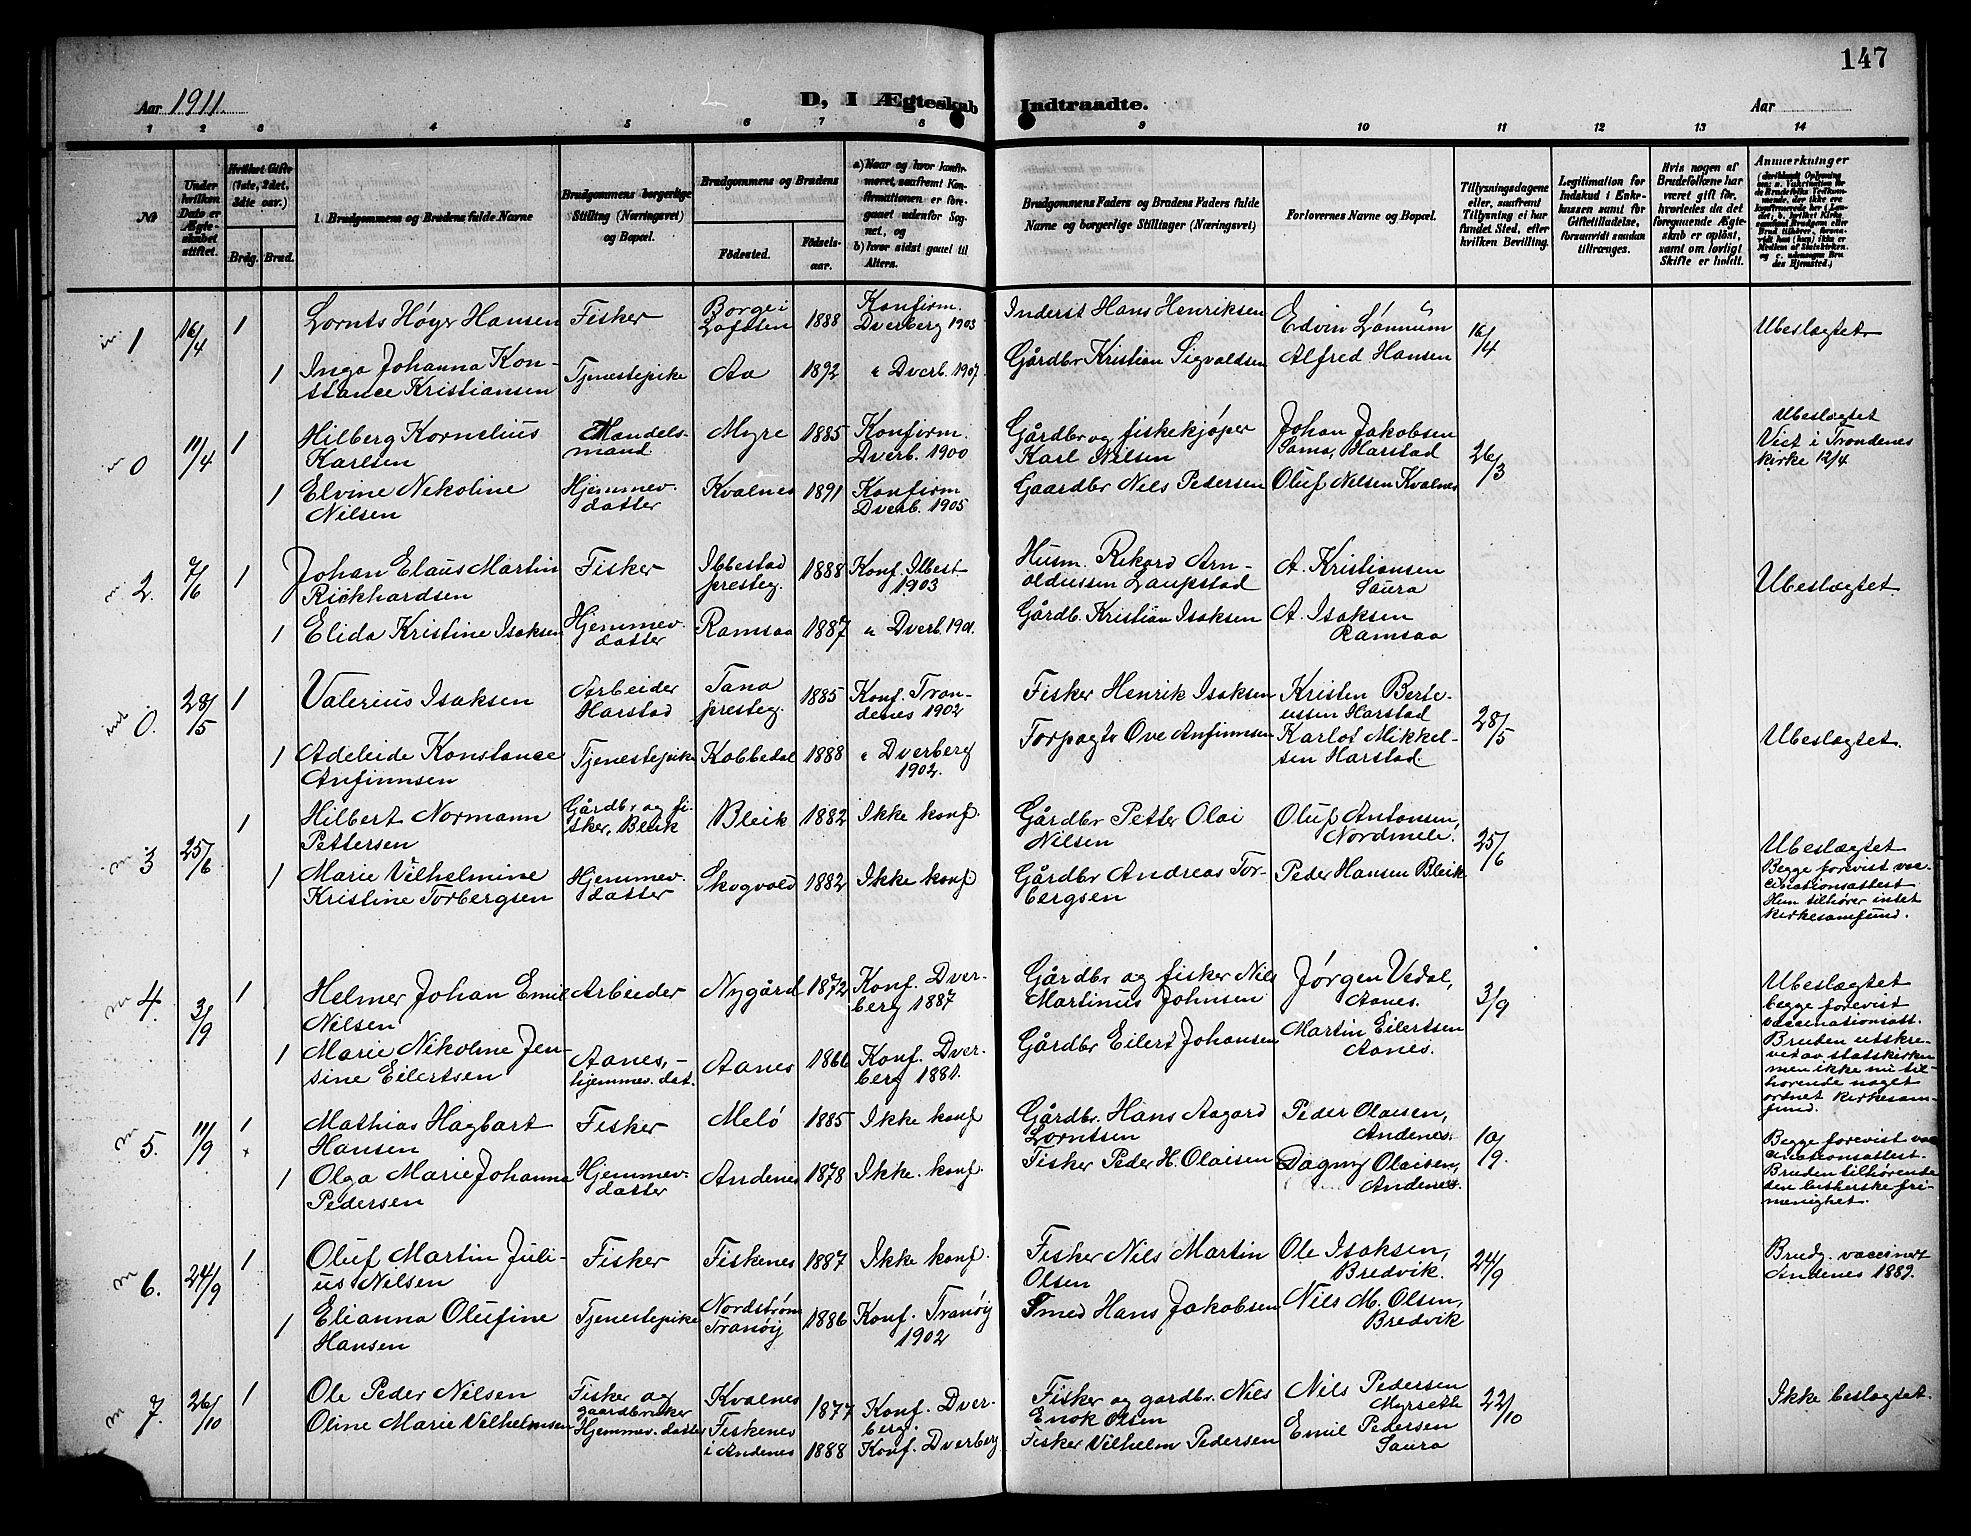 147
Aar 1911.
D, I Ægteskab
Indtraadte.
Aar
1 2 3 4 5 6 7 8 9 10 11 12 13 14
№
Under hvilken Dato er Ægteskabet stiftet.
Hvilket Gifte (1ste, 2det, 3die osv.)
Brdg. Brud.
1. Brudgommens og Brudens fulde Navne
Brudgommens borgerlige Stilling (Næringsvei) og Bopæl.
Brudgommens og Brudens
Fødested.
Fødselsaar.
a) Naar og hvor konfirmeret, saafremt Konfirmationen er foregaaet udenfor Sognet, og
b) hvor sidst gaaet til Alters.
Brudgommens Faders og Brudens Faders fulde Navne og borgerlige Stillinger (Næringsvei)
Forlovernes Navne og Bopæl.
Tillysningsdagene eller, saafremt Tillysning ei har fundet Sted, efter hvilken Bevilling.
Legitimation for Indskud i Enkekassen samt for Giftetilladelse, forsaavidt saadan tiltrænges.
Hvis nogen af Brudefolkene har været gift før, hvorledes da det foregaaende Ægteskab er opløst, samt om lovligt Skifte er holdt.
Anmærkninger
1 16/4 1 Lornts Høyer Hansen Fisker Borge i Lofoten 1888 Konfirm. Dverberg 1903 Inderst Hans Henriksen Edvin Lønnum 16/4 Ubeslægtet
1 Inga Johanna Konstance Kristiansen Tjenestepike Aa 1892 " Dverb. 1907. Gårdbr Kristian Sigvaldsen Alfred Hansen
0 11/4 1 Hilberg Kornelius Karlsen Handelsmand Myre 1885 Konfirm. Dverb. 1900 Gårdbr og fiskekjøper Karl Nilsen Johan Jakobsen Sama, Harstad 26/3 Ubeslægtet Viet i Trondenes kirke 12/4
1 Elvine Nikoline Nilsen Hjemmev. datter Kvalnes 1891 Konfirm Dverb. 1905 Gaardbr Nils Pedersen Oluf Nilsen Kvalnes
2. 7/6 1 Johan Elaus Martin Rickhardsen Fisker Ibbestad presteg. 1888 Konf. Ibest 1903 Husm. Rikard Arnoldussen Laupstad A. Kristiansen Saura Ubeslægtet
1 Elida Kristine Isaksen Hjemmev. datter Ramsaa 1887 " Dverb. 1901. Gårdb. Kristian Isaksen A. Isaksen Ramsaa
0. 28/5 1 Valerius Isaksen Arbeider Harstad Tana presteg. 1885 Konf. Trondenes 1902 Fisker Henrik Isaksen Kristen Berteussen Harstad 28/5 Ubeslægtet.
1 Adeleide Konstance Anfinnsen Tjenestepike Kobbedal 1888 " Dverberg 1902. Torpagtr Ove Anfinnsen Karlot Mikkelsen Harstad.
3 25/6 1 Hilbert Normann Pettersen Gårdbr og fisker, Bleik Bleik 1882 Ikke konf. Gårdbr Petter Olai Nilsen Oluf Antonsen, Nordmele. 25/6 Ubeslægtet Begge forevist vaccinationsattest. Hun tilhører intet kirkesamfund.
1 Marie Vilhelmine Kristine Torbergsen Hjemmev. datter Skogvold 1882 Ikke konf Gårdbr Andreas Torbergsen Peder Hansen Bleik
4. 3/9 1 Helmer Johan Emil Nilsen Arbeider Nygård 1872 Konf. Dverberg 1887 Gårdbr og fisker Nils Martinus Johnsen Jørgen Vedal, Aanes. 3/9 Ubeslægtet begge forevist vaccinationsatt. Bruden utskrevet av statskirken men ikke nu tilhørende noget ordnet kirkesamfund.
1 Marie Nikoline Jensine Eilertsen Aanes, - hjemmev. dat. Aanes 1866 Konf. Dverberg 1881. Gårdbr Eilert Johansen Martin Eilertsen Aanes.
5. 11/9 1 Mathias Hagbart Hansen Fisker Melö 1885 Ikke konf Gårdbr. Hans Aagard Lorntsen Peder Olaisen, Andenes. 10/9. Begge forevist vaccinationsattest. Bruden tilhørende den lutherske frimenighet.
1 Olga Marie Johanne Pedersen Hjemmev. datter Andenes 1878 Ikke. konf. Fisker Peder H. Olaisen Dagny Olaisen, Andenes.
6. 24/9 1 Oluf Martin Julius Nilsen Fisker Fiskenes 1887 Ikke konf. Fisker Nils Martin Olsen Ole Isaksen, Bredvik. 24/9 Brudg. vaccinert Andenes 1889.
1 Elianna Olufine Hansen Tjenestepike Nordstrøm Tranöy 1886 Konf. Tranöy 1902 Smed Hans Jakobsen Nils M. Olsen, Bredvik
7. 26/10 1 Ole Peder Nilsen Fisker og gaardbruker Kvalnes 1877 Konf. Dverberg. Fisker og gardbr. Nils Enok Olsen Nils Pedersen Myrsette 22/10 Ikke beslægtet.
Oline Marie Vilhelmsen Hjemmev. datter Fiskenes i Andenes 1888 Konf. Dverberg Fisker Vilhelm Pedersen Emil Pedersen Saura